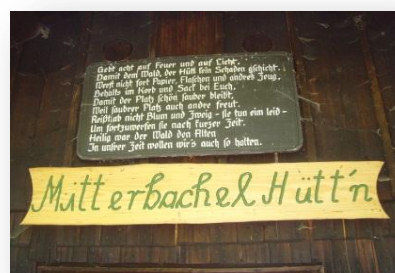 Gebt acht auf Feuer und auf Licht,
Damit dem Wald, der Hütt kein Schaden gschicht.
Werft nicht fort Papier, Flaschen und andres Zeug,
Behalts im Korb und Sack bei Euch,
Damit der Platz schön sauber bleibt,
Weil saubrer Platz auch andre freut.
Reißt ab nicht Blum und Zweig - sie tun ein leid -
Um fortzuwerfen sie nach kurzer Zeit.
Heilig war der Wald den Alten
In unsrer Zeit wollen wir's auch so halten.
Mitterbachel Hütt'n